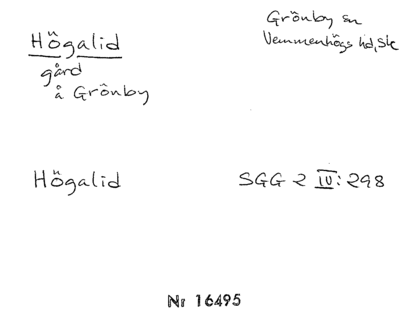 Högalid
gård
å Grönby
Grönby sn
Vemmenhögs hd, Sk
Högalid
SGG 2 IV: 298
Nr 16495